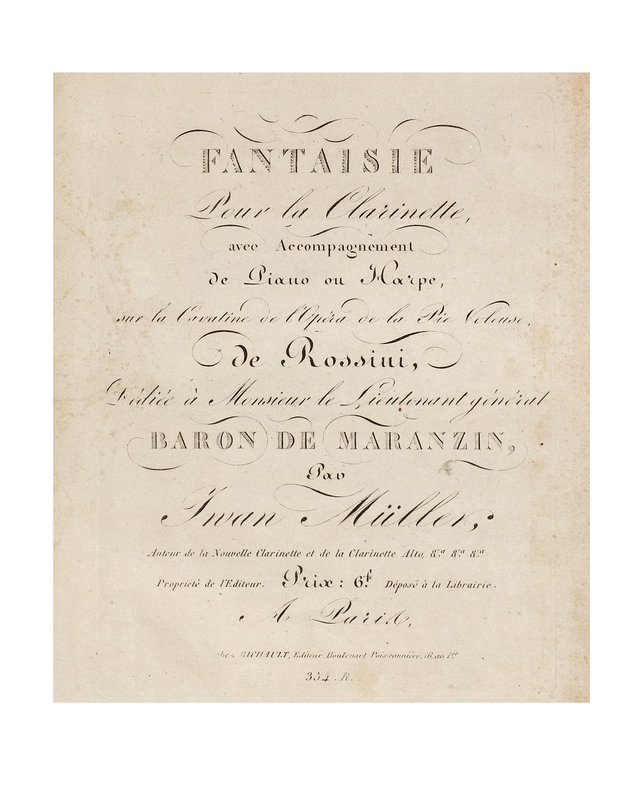 FANTAISIE
Pour la Clarinette,
avec Accompagnement
de Piano ou Harpe,
sur la Cavatine de l'Opéra de la Pie Voleuse,
de Rossini,
Dédiée à Monsieur le Lieutenant général
BARON DE MARANZIN,
Par
Iwan Müller,
Auteur de la Nouvelle Clarinette et de la Clarinette Alto, &.a &.a &.a
Propriété de l'Editeur. Prix: 6f Déposé à la Librairie.
A Paris,
chez RICHAULT, Editeur Boulevart Poissonnière, au 1er
354. R.